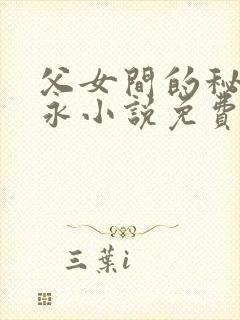 父女間的秘
永小說免費
三葉i